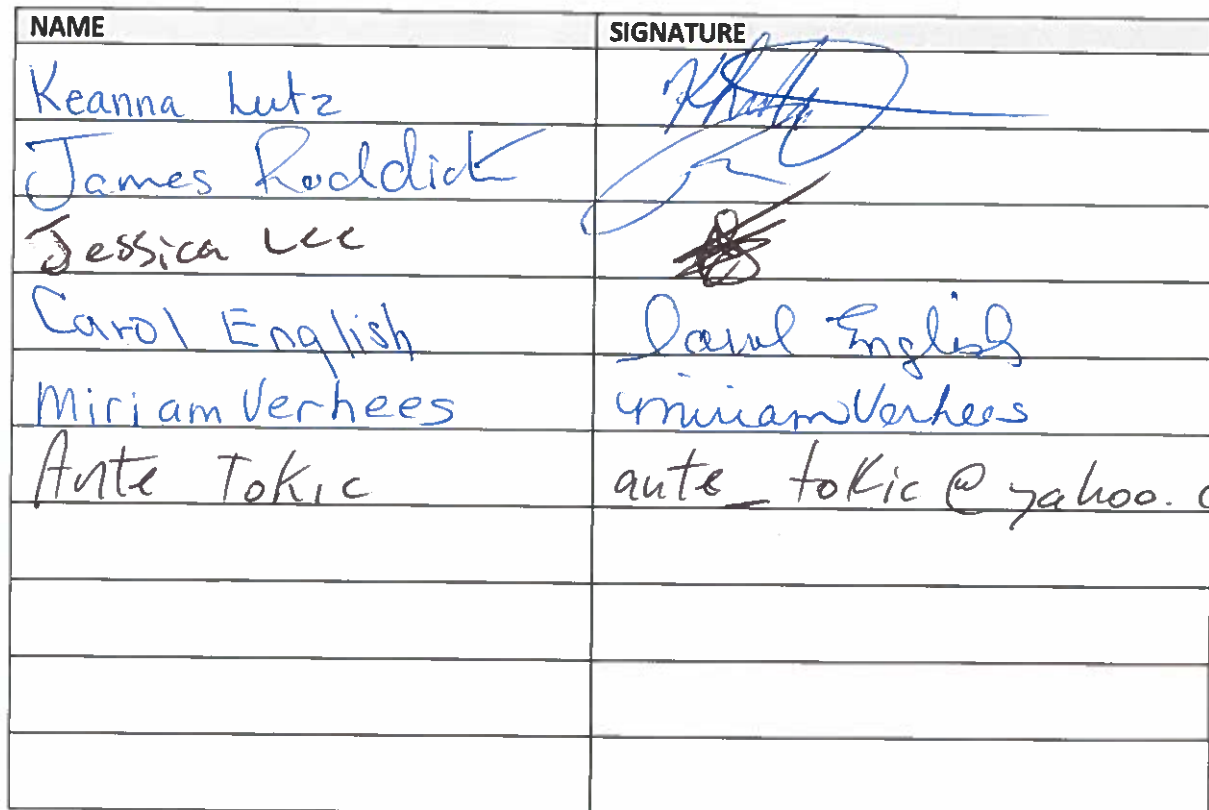 NAME SIGNATURE
Keanna Lutz
James Roddick
Jessica Lee
Carol English Carol English
Miriam Verhees Miriam Verhees
Ante Tokic ante_tokic@yahoo.c